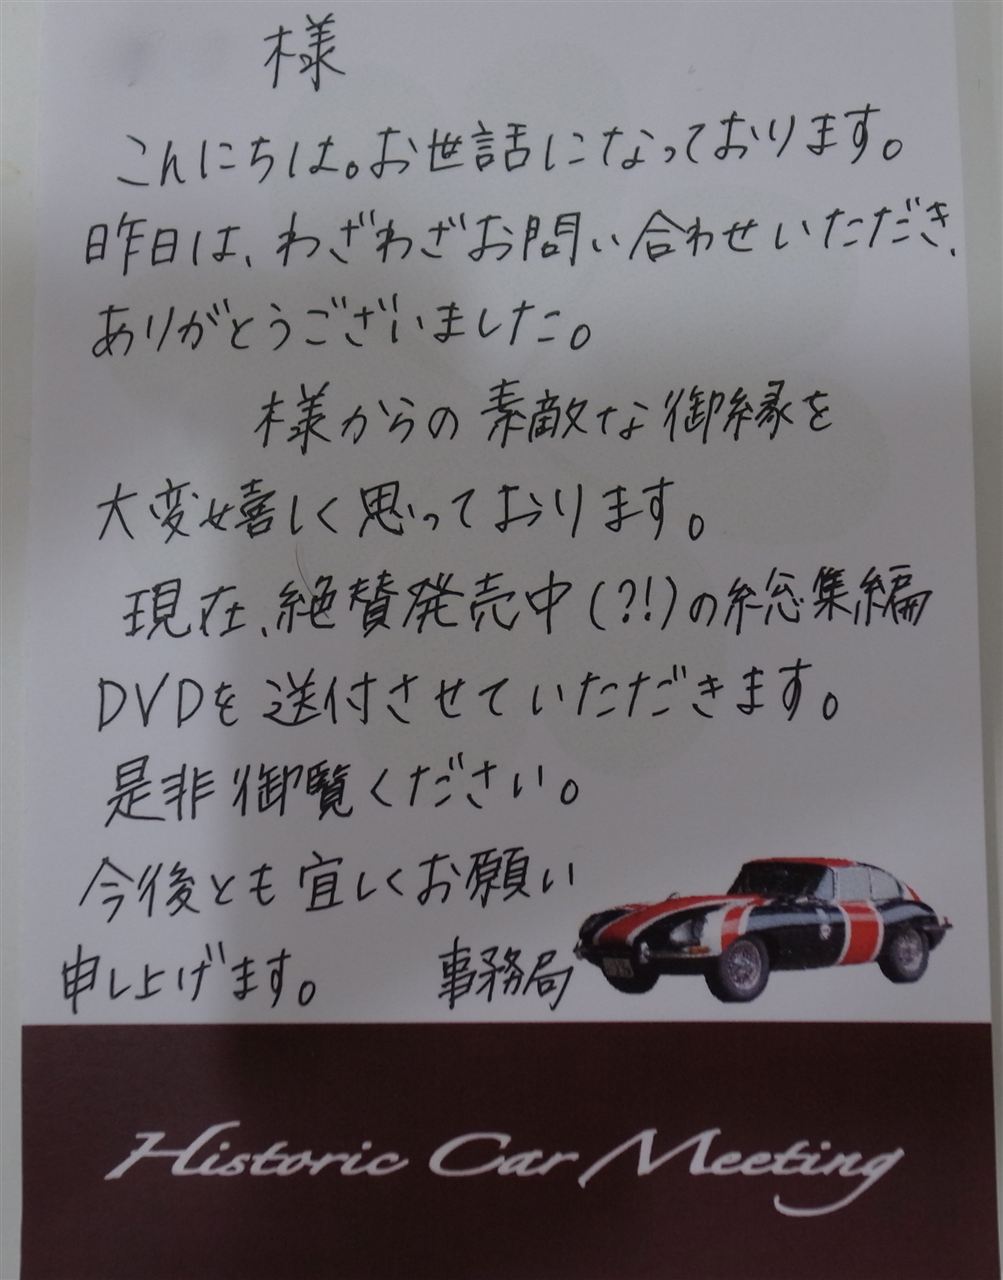 様
こんにちは。お世話になっております。
昨日は、わざわざお問い合わせいただき、
ありがとうございました。
様からの素敵な御縁を
大変嬉しく思っております。
現在、絶賛発売中(?!)の総集編
DVDを送付させていただきます。
是非御覧ください。
今後とも宜しくお願い
申し上げます。 事務局
Historic Car Meeting